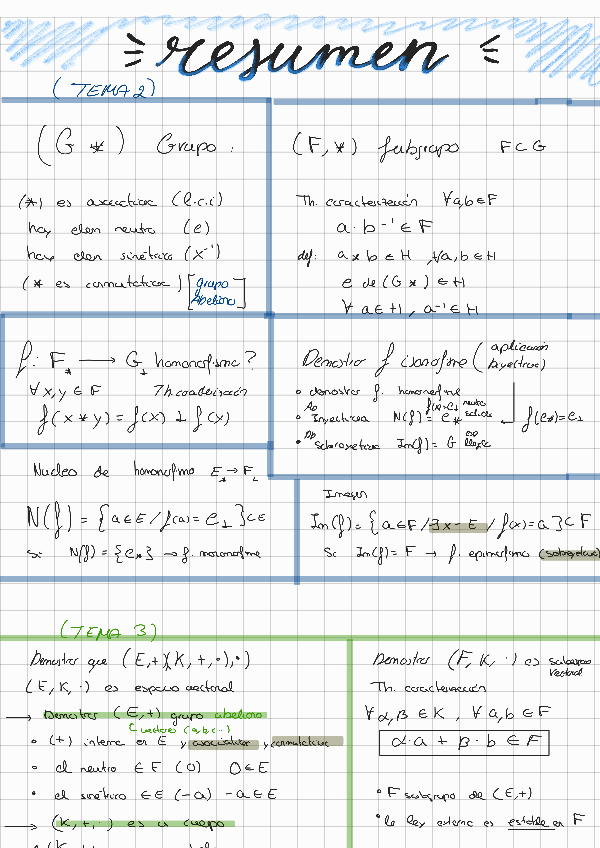 resumen
(TEMA 2)
(G *) Grupo:
(*) es asociativa (l.c.i)
hay elem neutro (e)
hay elem simétrico (x⁻¹)
(* es conmutativa) [grupo
Abeliano]
(F, *) Subgrupo F⊂G
Th. caracterización ∀a,b∈F
a·b⁻¹∈F
def: a*b∈H ∀a,b∈H
e de (G *)∈H
∀ a∈H, a⁻¹∈H
f: F* → G⊥ homomorfismo?
∀x,y∈F Th caracterización
f(x*y) = f(x)⊥f(y)
Demostrar f isomorfismo (aplicación
biyectiva)
• demostrar f. homomorfismo
• Inyectiva N(f) = e* f(e*)=e⊥
• Sobreyectiva Im(f) = G
Nucleo de homomorfismo E* → F⊥
N(f) = {a∈E / f(a) = e⊥}⊂E
Si N(f) = {e*} → f. monomorfismo
Imagen
Im(f) = {a∈F / ∃x-E / f(x)=a}⊂F
Si Im(f) = F → f. epimorfismo (sobreyectiva)
(TEMA 3)
Demostrar que (E,+)(K,+,·),·)
(E,K,·) es espacio vectorial
→ Demostrar (E,+) grupo abeliano
(a,b,c..)
• (+) interna en E y asociativa y conmutativa
• el neutro ∈F (0) 0∈E
• el simétrico ∈E (-a) -a∈E
→ (K,+,·) es un cuerpo
Demostrar (F,K,·) es subespacio
vectorial
Th. caracterización
∀α,β∈K, ∀a,b∈F
α·a + β·b∈F
• F subgrupo de (E,+)
• la ley externa es estable en F